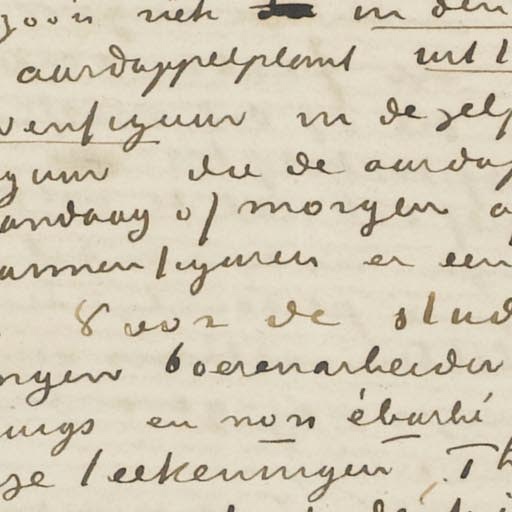 zoo'n ziek in den
aardappelplant uit
venfiguur in dezelf
guur die de aardap
andaag of morgen a
armenfiguren er een
voor de stud
ngen boerenarbeider
ings en non ébarbé
ze teekeningen. Th